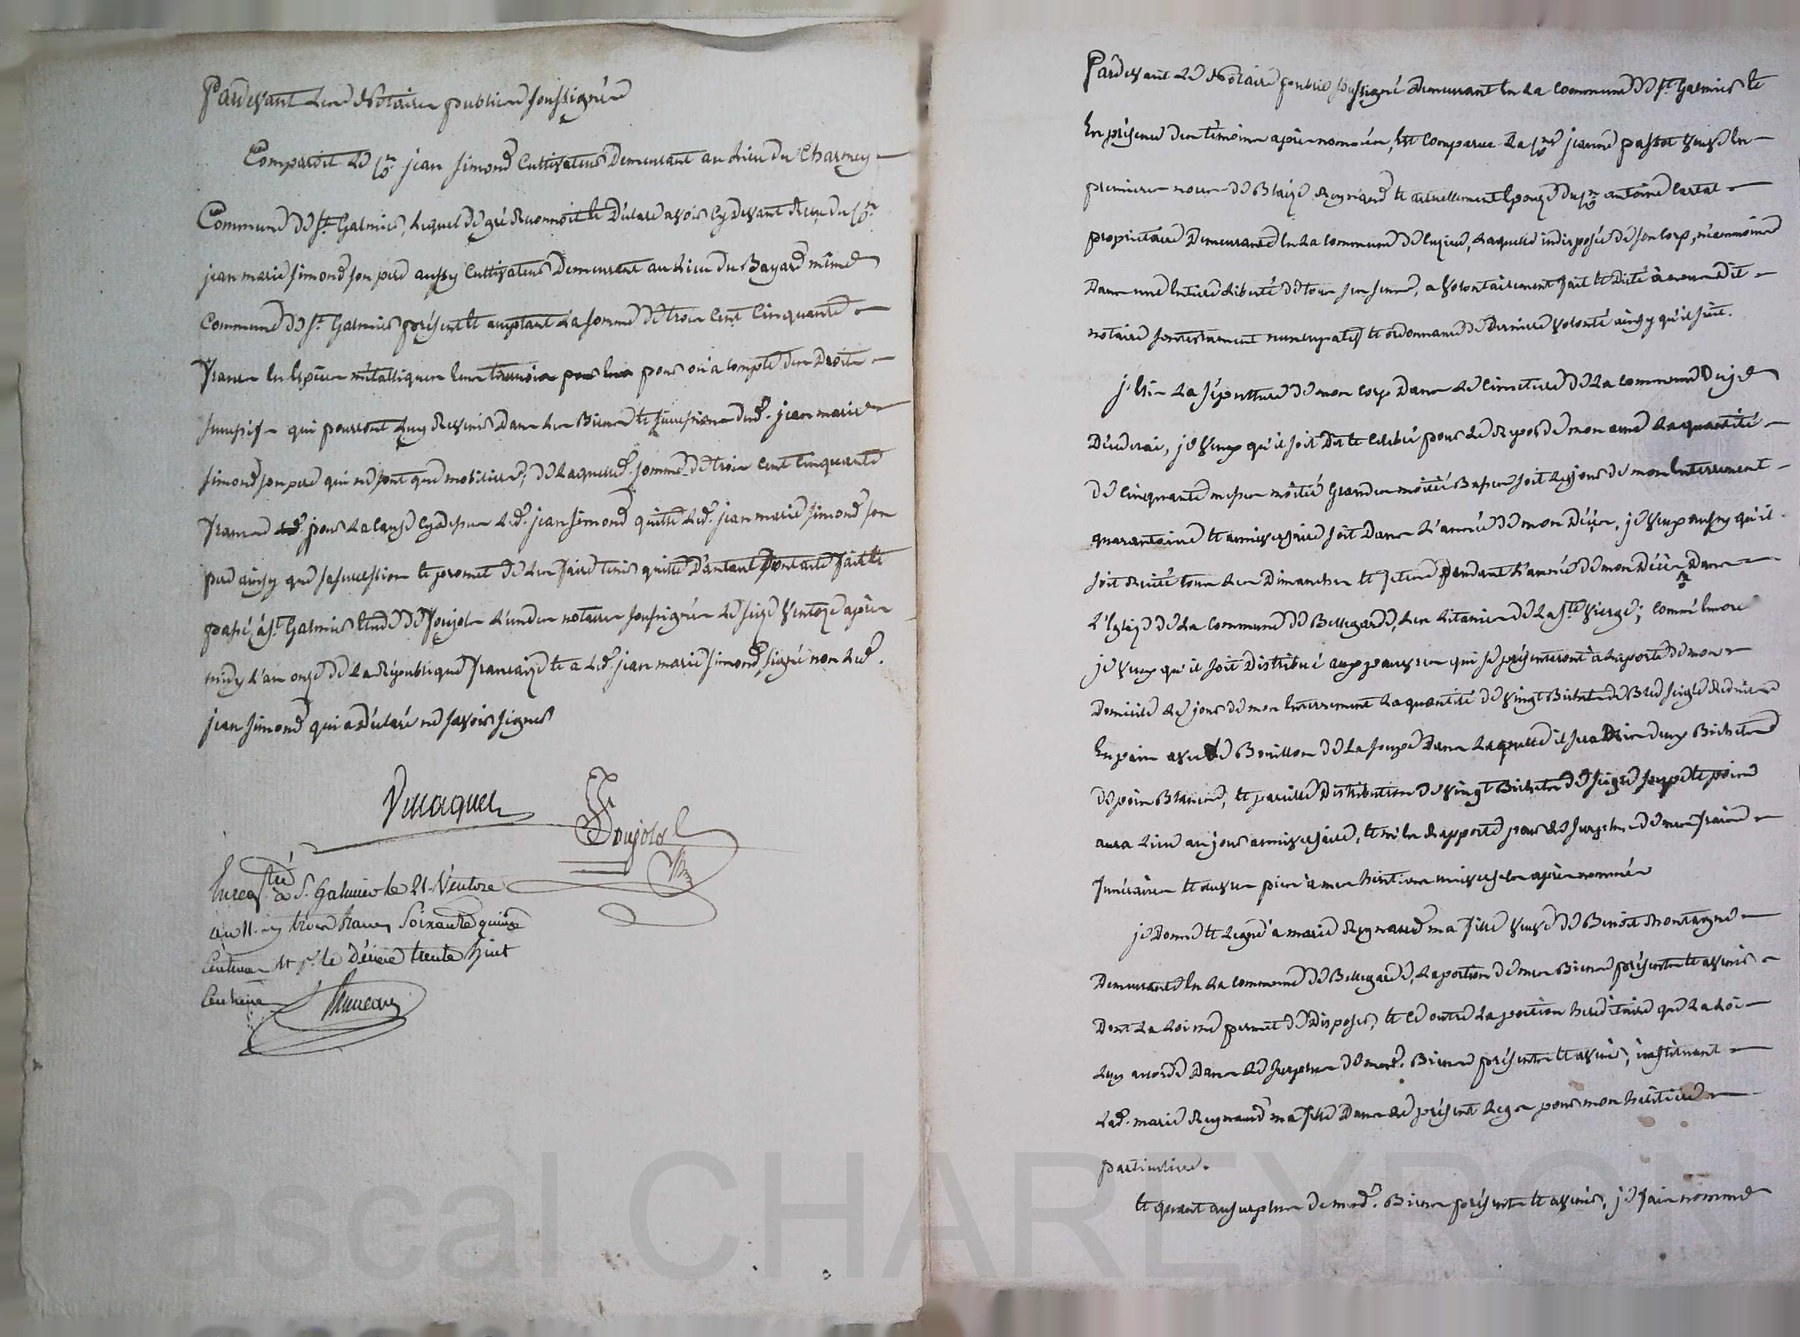 Pardevant Les Notaires publics soussignés
Comparoit Le Sr. jean Simond Cultivateur Demeurant au Lieu du Charmey
Commune de St. Galmier, Lequel de gré Reconnoit et Déclare avoir Cy devant Reçu du Sr.
jean marie Simond son pere aussy Cultivateur Demeurant au Lieu du Bayard même
Commune de St. Galmier présent et acceptant La somme de trois Cent Cinquante
francs En Espèces métalliques pour ou a compte des Droits
qui pourront Luy Revenir Dans Les Biens et Succession dud. jean marie
Simond son pere qui ne sont que mobiliers, de Laquelle somme de trois Cent Cinquante
francs pour La Cause Cy dessus Led. jean Simond quitte Led. jean marie Simond son
pere ainsy que sa succession et promet de Les faire tenir quitte D'autant Dont acte fait et
passé à St. Galmier Etude de Poujols L'un des notaires soussignés Le seize Ventose après
midy L'an onze de La République française et a Led. jean marie Simond signé non Led.
jean Simond qui a Déclaré ne savoir signer
Poujols
Enregistré à St. Galmier le 21 Ventose
an 11. reçu trois francs Soixante quinze
Centimes et pr. le Décime trente huit
Centimes
Pardevant Le Notaire public soussigné Demeurant En La Commune de St. Galmier et
En présence des témoins après nommés, Est Comparue La Jeanne pastot Veuve En
premieres noces de Blaize Reynaud et actuellement Epouse du Sr. antoine
propriétaire Demeurante En La Commune de Cuzieu, Laquelle indisposée de son Corps, néanmoins
Dans une Entiere Liberté de tous ses sens, a Volontairement fait et Dicté à nous dit
notaire son testament nuncupatif et ordonnance de Derniere Volonté ainsy qu'il suit.
j'Elis La sépulture de mon Corps Dans Le Cimetiere de La Commune où je
Décéderai, je Veux qu'il soit Dit et Célébré pour Le Repos de mon ame La quantité
de Cinquante messes moitié Grandes moitié Basses soit Le jour de mon Enterrement
quarantaine et anniversaire soit Dans L'année de mon Décès, je Veux aussy qu'il
soit Récité tous Les Dimanches et fetes pendant L'année de mon Décès Dans
L'Eglise de La Commune de Bellegarde, Les Litanies de La Ste Vierge; Comme Encore
je Veux qu'il soit Distribué aux pauvres qui se présenteront à La porte de mon
Domicile Le jour de mon Enterrement La quantité de Vingt Bichets de Bled seigle Réduits
En pain avec Bouillon de La soupe Dans Laquelle il sera mis deux Bichets
de pois Blancs, et pareille Distribution de Vingt Bichets de seigle soupe et pois
aura Lieu au jour anniversaire, et m'En Rapporte pour Le surplus de mes frais
funéraires et œuvres pies à mes héritiers universels après nommés
je Donne et Legue à marie Reynaud ma fille Veuve de Benoit Montagne
Demeurante En La Commune de Bellegarde, La portion de mes Biens présents et avenir
Dont La Loi me permet de Disposer, et ce outre La portion héréditaire que La Loi
Luy accorde Dans Le surplus de mesd. Biens présents et avenir, instituant
Lad. marie Reynaud ma fille Dans Le présent Legs pour mon héritiere
particuliere.
Et quant au surplus de mesd. Biens présents et avenir, je fais nomme
Pascal CHARLEYRON